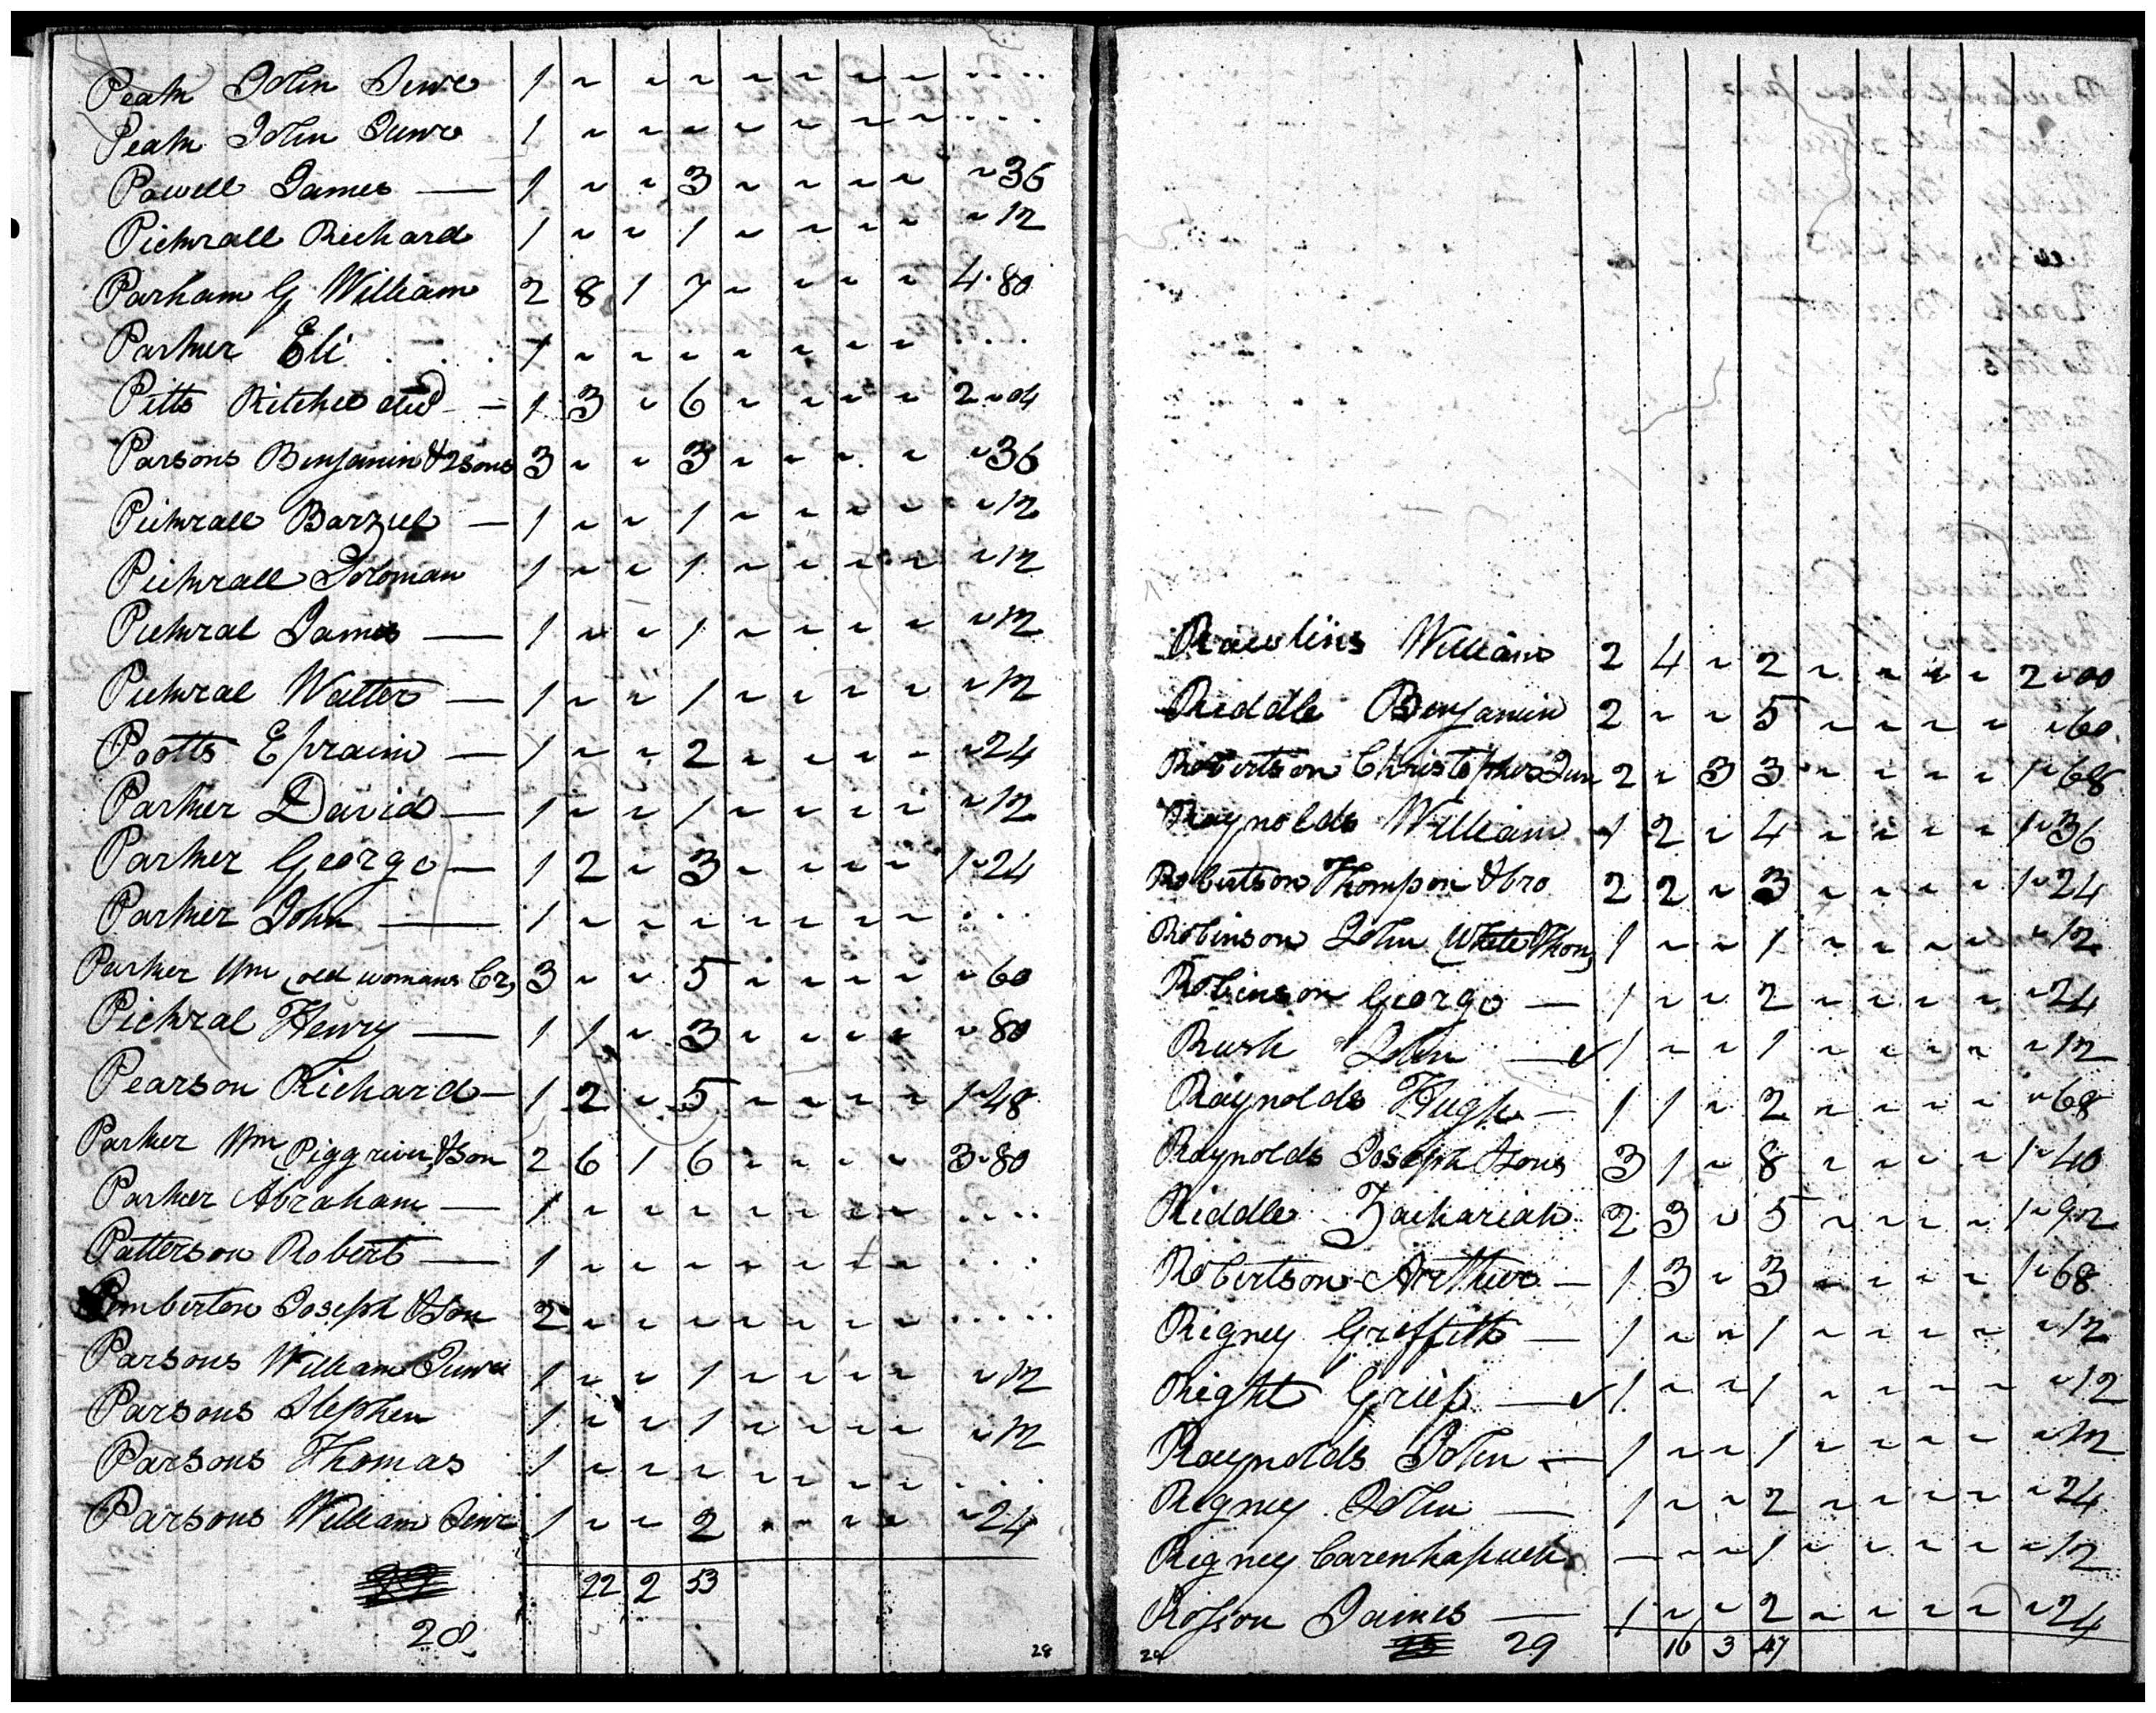 Peak John Senr 1 ~ ~ ~ ~ ~ ~ ~ ....
Peak John Junr 1 ~ ~ ~ ~ ~ ~ ~ ....
Powell James — 1 ~ ~ 3 ~ ~ ~ ~ ~36
Pickrall Richard 1 ~ ~ 1 ~ ~ ~ ~ ~12
Parham G William 2 8 1 7 ~ ~ ~ ~ 4.80
Parker Eli . . . 1 ~ ~ ~ ~ ~ ~ ~ ...
Pitts Ritchee — 1 3 ~ 6 ~ ~ ~ ~ 2~04
Parsons Benjamin & 2 sons 3 ~ ~ 3 ~ ~ ~ ~ ~36
Pickrall Barziel — 1 ~ ~ 1 ~ ~ ~ ~ ~12
Pickrall Soloman 1 ~ ~ 1 ~ ~ ~ ~ ~12
Pickral James — 1 ~ ~ 1 ~ ~ ~ ~ ~12
Pickral Walter — 1 ~ ~ 1 ~ ~ ~ ~ ~12
Pootts Epraim — 1 ~ ~ 2 ~ ~ ~ ~ ~24
Parker David — 1 ~ ~ 1 ~ ~ ~ ~ ~12
Parker George — 1 2 ~ 3 ~ ~ ~ ~ 1~24
Parker John — 1 ~ ~ ~ ~ ~ ~ ~ ...
Parker Wm (old womans Cr) 3 ~ ~ 5 ~ ~ ~ ~ ~60
Pickral Henry — 1 1 ~ 3 ~ ~ ~ ~ ~80
Pearson Richard — 1 2 ~ 5 ~ ~ ~ ~ 1~48
Parker Wm Pigg river & son 2 6 1 6 ~ ~ ~ ~ 3~80
Parker Abraham — 1 ~ ~ ~ ~ ~ ~ ~ ....
Patterson Robert — 1 ~ ~ ~ ~ ~ ~ ~ ...
Pemberton Joseph & son 2 ~ ~ ~ ~ ~ ~ ~ .....
Parsons William Junr 1 ~ ~ 1 ~ ~ ~ ~ ~12
Parsons Stephen 1 ~ ~ 1 ~ ~ ~ ~ ~12
Parsons Thomas 1 ~ ~ ~ ~ ~ ~ ~ ...
Parsons William Senr 1 ~ ~ 2 ~ ~ ~ ~ ~24
22 2 53
28
28
Rawlins William 2 4 ~ 2 ~ ~ ~ ~ 2~00
Riddle Benjamin 2 ~ ~ 5 ~ ~ ~ ~ ~60
Robertson Christopher Jun 2 ~ 3 3 ~ ~ ~ ~ 1~68
Raynolds William — 1 2 ~ 4 ~ ~ ~ ~ 1~36
Robertson Thompson & bro 2 2 ~ 3 ~ ~ ~ ~ 1~24
Robinson John (White Thorn) 1 ~ ~ 1 ~ ~ ~ ~ ~12
Robinson George — 1 ~ ~ 2 ~ ~ ~ ~ ~24
Rush John — ✓ 1 ~ ~ 1 ~ ~ ~ ~ ~12
Raynolds Hugh — 1 1 ~ 2 ~ ~ ~ ~ ~68
Raynolds Joseph & sons 3 1 ~ 8 ~ ~ ~ ~ 1~40
Riddle Zachariah 2 3 ~ 5 ~ ~ ~ ~ 1~92
Robertson Arthur — 1 3 ~ 3 ~ ~ ~ ~ 1~68
Rigney Griffith — 1 ~ ~ 1 ~ ~ ~ ~ ~12
Right Grief — ✓ 1 ~ ~ 1 ~ ~ ~ ~ ~12
Raynolds John — 1 ~ ~ 1 ~ ~ ~ ~ ~12
Rigney John — 1 ~ ~ 2 ~ ~ ~ ~ ~24
Rigney Carenhapuck — ~ ~ 1 ~ ~ ~ ~ ~12
Rosson James — 1 ~ ~ 2 ~ ~ ~ ~ ~24
29 16 3 47
29